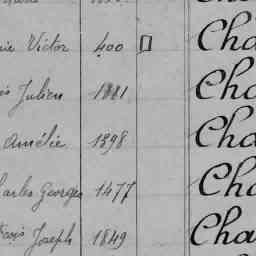 Victor 400 Cha
Julien 1881 Cha
Amélie 1898 Cha
Charles Georges 1477 Cha
François Joseph 1849 Cha